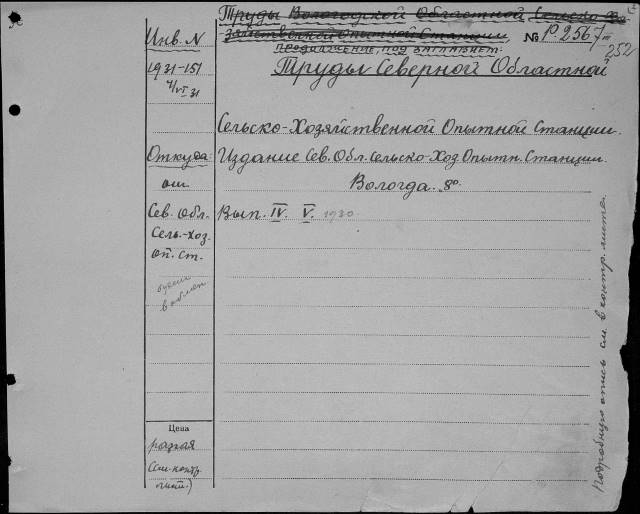 Труды Вологодской Областной Сельско-Хо-
зяйственной Опытной Станции
продолжение, под заглавием:
№ P.2567/252
Труды Северной Областной
Сельско-Хозяйственной Опытной Станции.
Издание Сев. Обл. Сельско-Хоз. Опытн. Станции.
Вологда. 8°.
Вып. IV. V. 1930
Инв. N
1931-151
4/VI 31
Откуда:
от
Сев. Обл.
Сель.-хоз.
оп. ст.
в обмен
Цена
разная
(см. контр.
лист.)
Подробную опись см. в контр. листе.